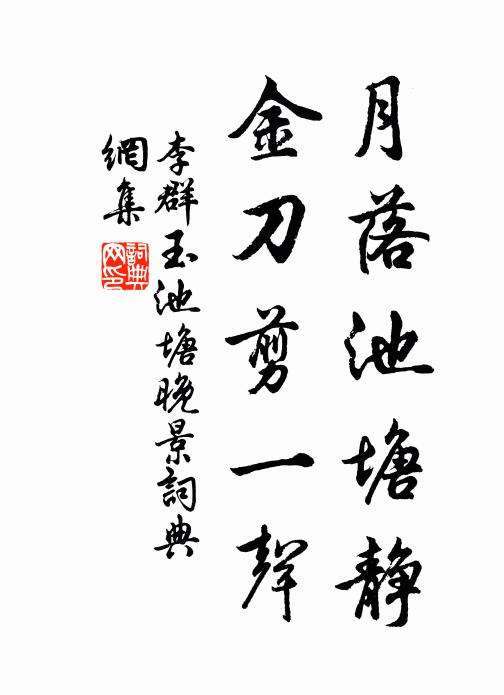 月落池塘静
金刀剪一聲
李群玉池塘晚景詞典
網集
詞典网印